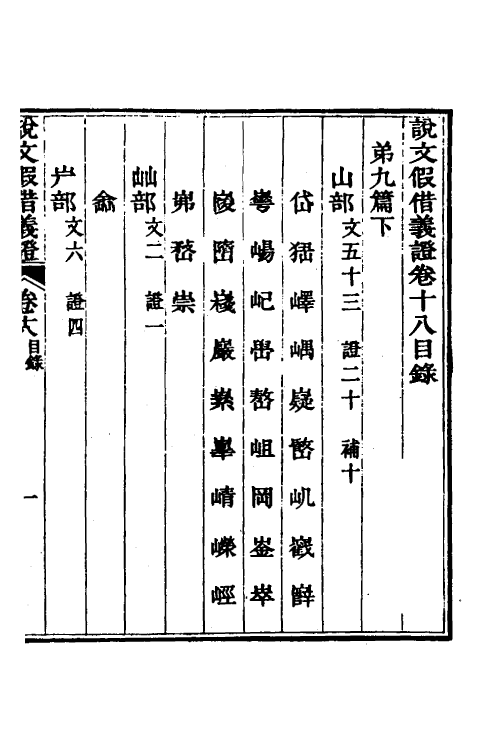 說文假借義證卷十八目錄
弟九篇下
山部文五十三 證二十 補十
岱 猺 嶧 嵎 嶷 嶅 屼 巀 嶭
崋 崵 屺 嶨 嶅 岨 岡 崟 崒
㟞 嶞 嶘 巖 嶪 辠 崝 嶸 崆
岪 嵍 崇
屾部文二 證一
嵞
屵部文六 證四
說文假借義證 卷大 目錄 一